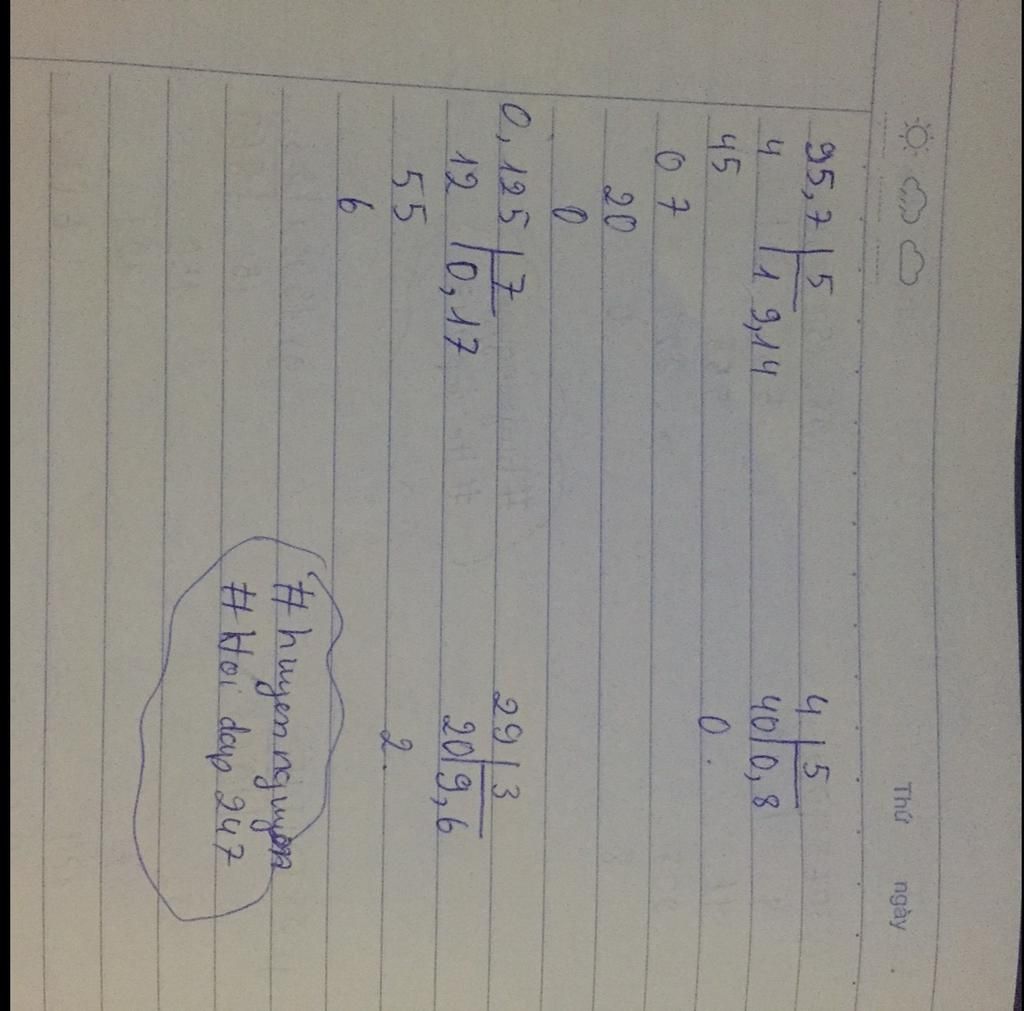 Thứ ngày
95,7 5
4 19,14
45
07
20
0
4 5
40 0,8
0.
0,125 7
12 0,17
55
6
29 3
20 9,6
2.
# huyennguyen
# Hoi dap 247